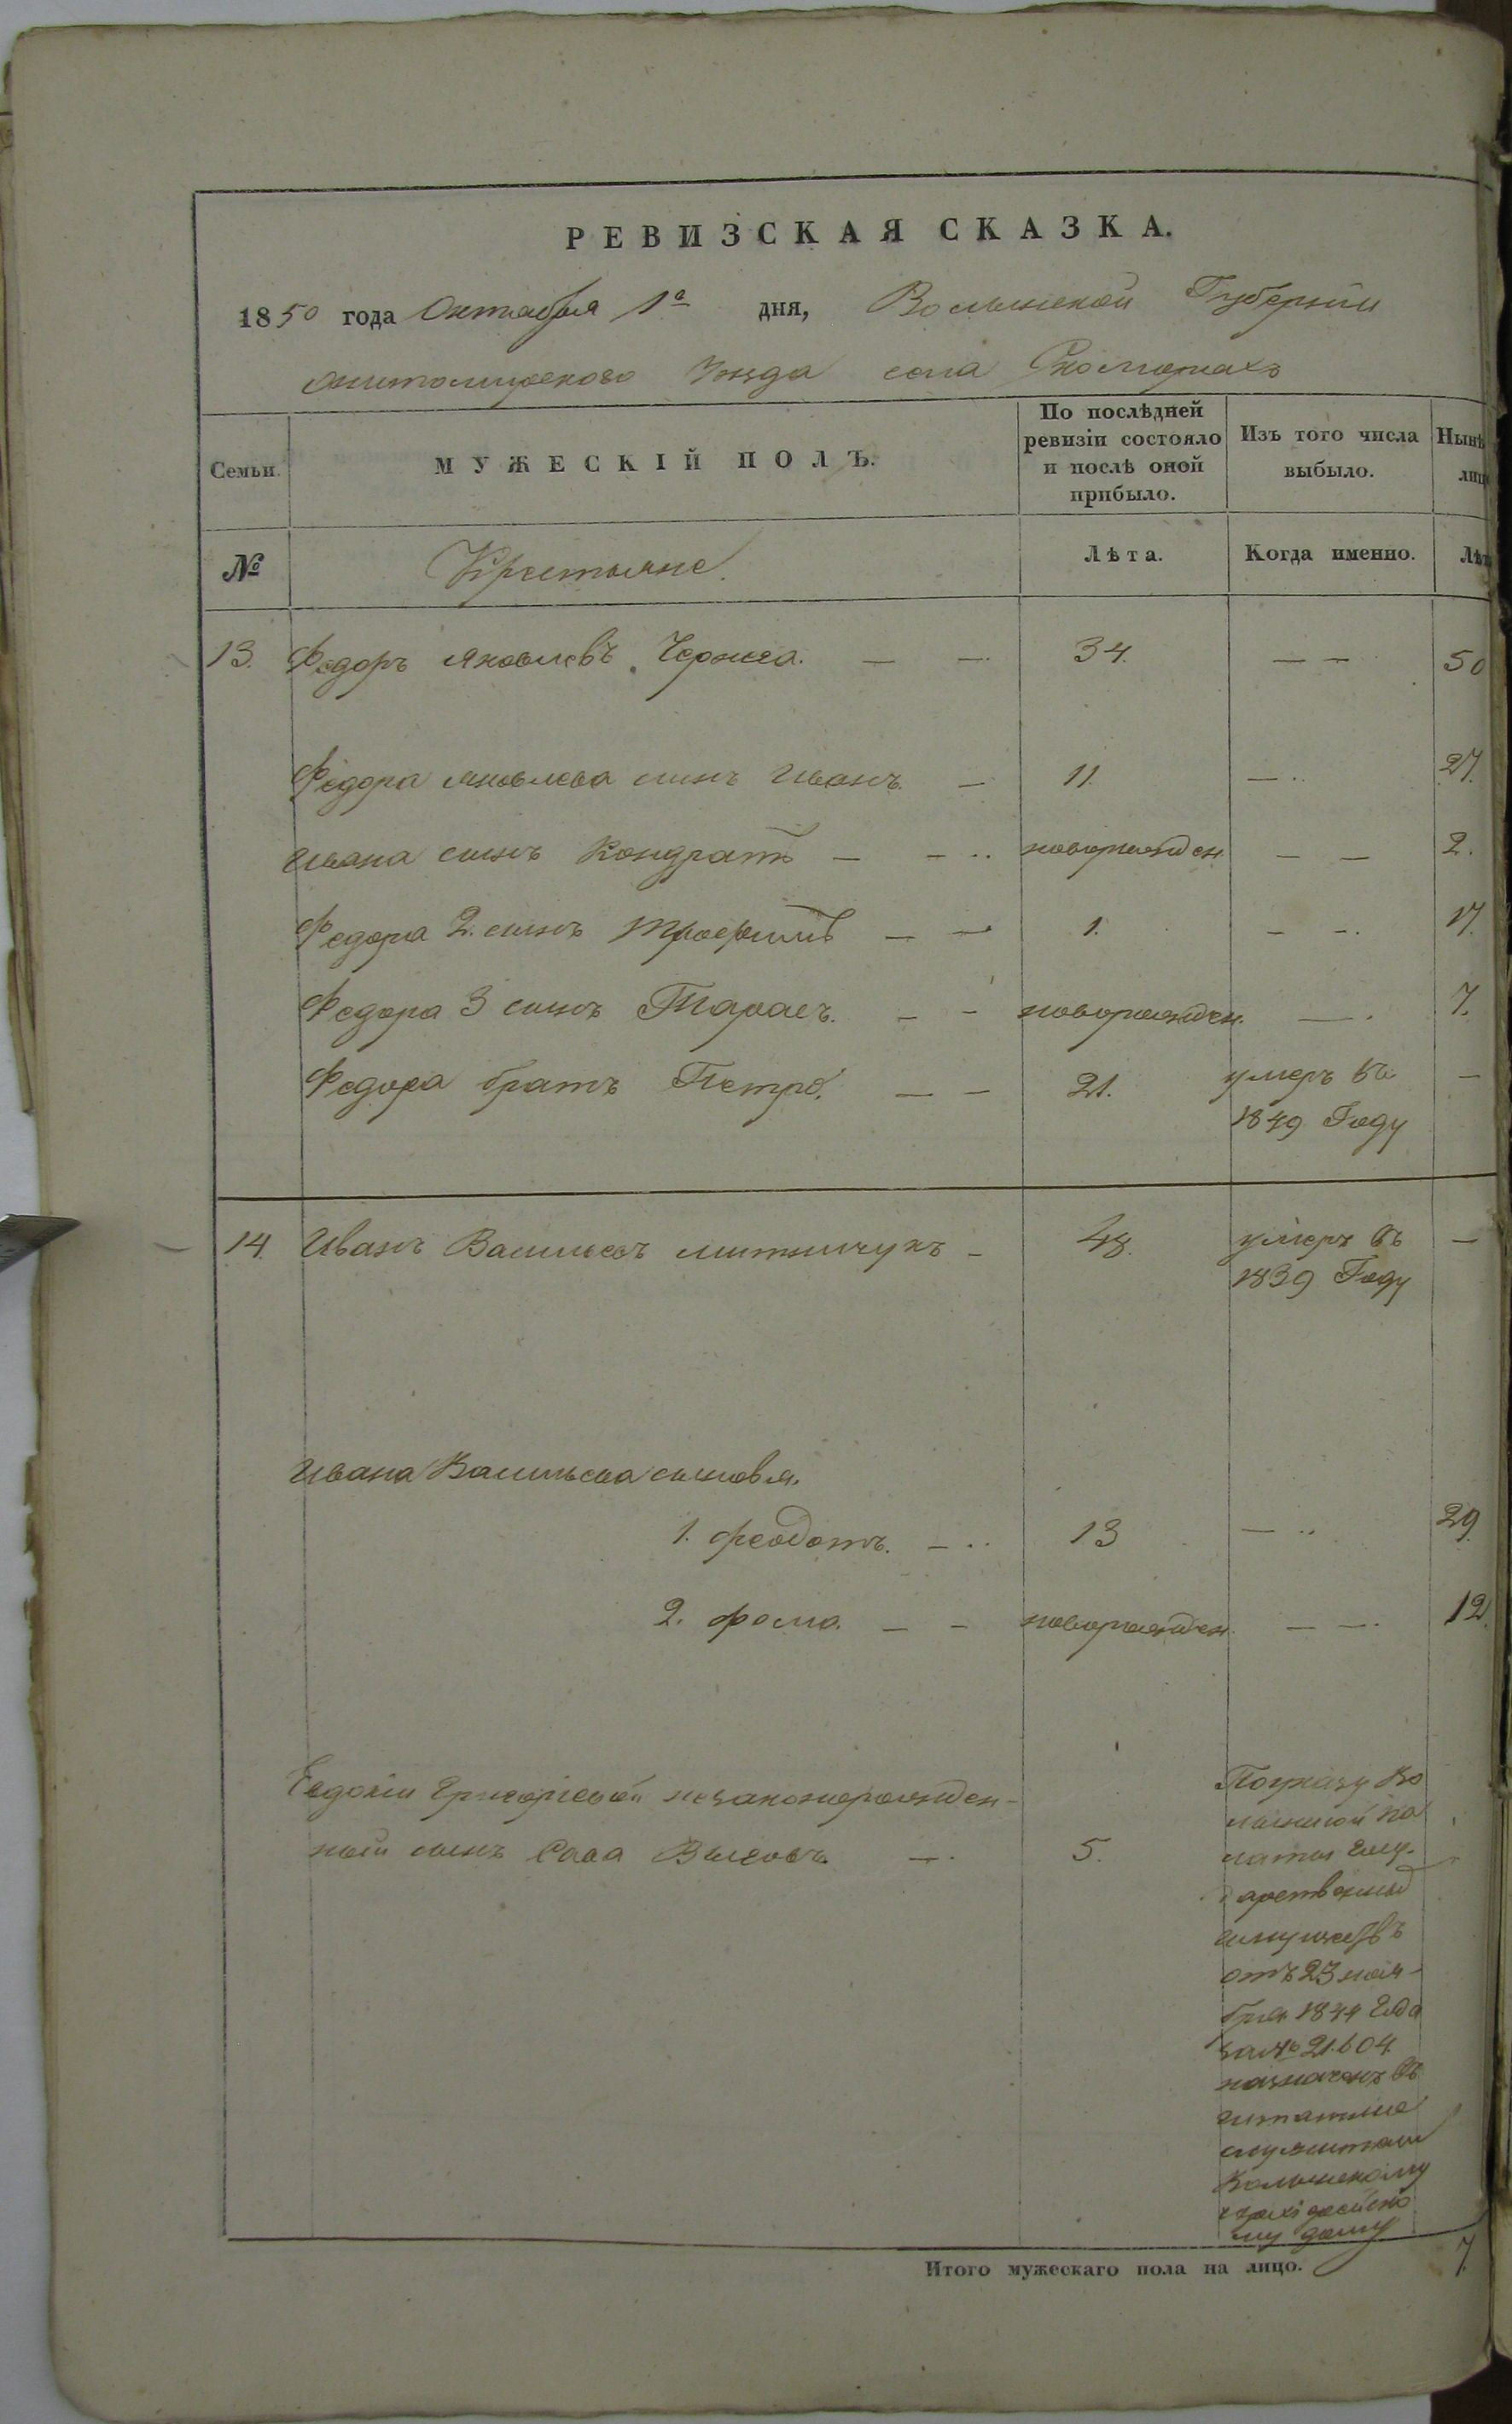 РЕВИЗСКАЯ СКАЗКА.
1850 года Октября 1го дня, Волынской Губернии
житомирского Уезда села
Семьи. МУЖЕСКІЙ ПОЛЪ. По послѣдней ревизіи состояло и послѣ оной прибыло. Изъ того числа выбыло. Нынѣ лиц
№ Крестьяне. Лѣта. Когда именно. Лѣт
13. Федоръ Яковлевъ — — 34. — — 50
Федора Яковлева сынъ Иванъ. — 11. — 27.
Ивана сынъ Кондратъ — — новорожден. — — 2.
Федора 2. сынъ Трофимъ — — 1. — — 17.
Федора 3 сынъ Тарасъ. — — новорожден. — 7.
Федора братъ Петръ. — — 21. умеръ въ —
1849 Году
14. Иванъ Васильевъ митничукъ — 48. умеръ въ —
1839 Году
Ивана Васильева сыновья.
1. Феодотъ. — 13 — 29.
2. Фома. — — новорожден. — — 12.
Евдокіи Григоріевой незаконорожден-
ный сынъ Сава — 5.
По указу Во
лынской па
латы Госу-
дарственныхъ
имуществъ
отъ 23 ноя-
бря 1844 Года
за № 21.604
назначенъ въ
штатные
служители
Волынскому
архіерейско
му дому
Итого мужескаго пола на лицо. 7